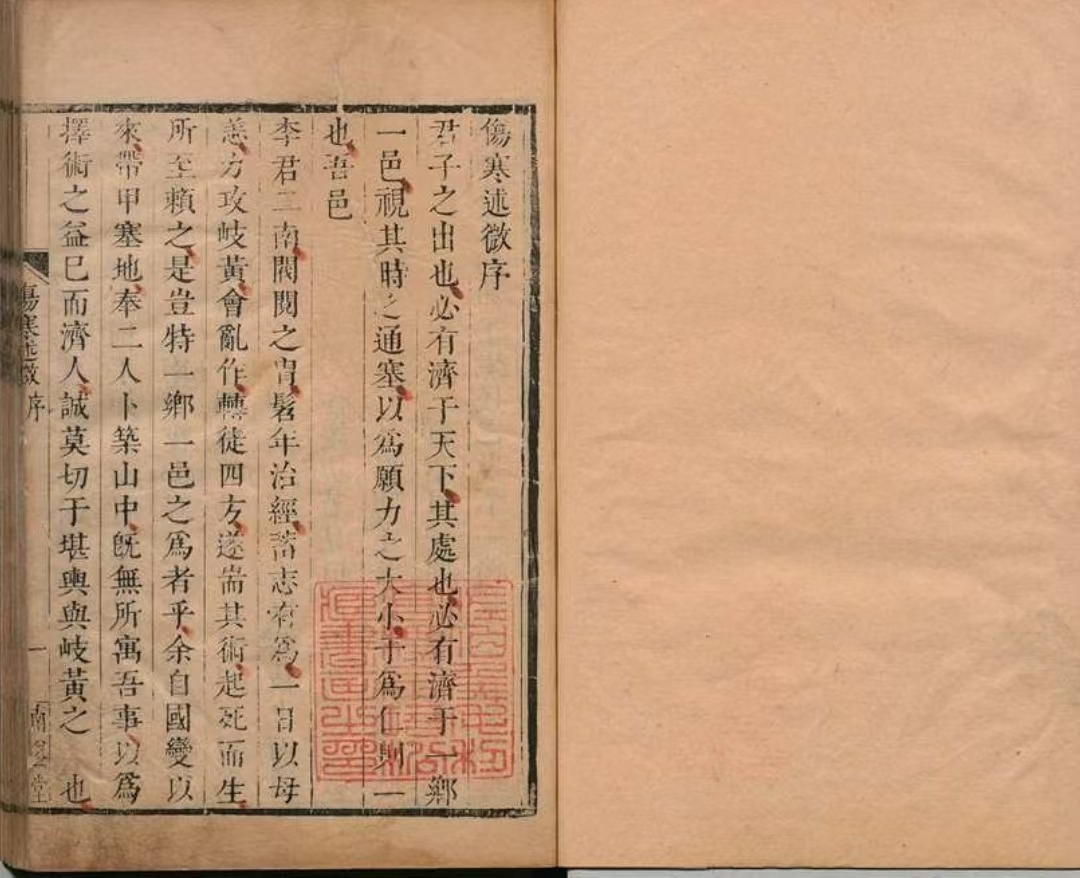 傷寒述微序
君子之出也必有濟于天下其處也必有濟于一鄉
一邑視其時之通塞以爲願力之大小于爲仁則一
也吾邑
李君二南閥閱之胄髫年治經蓄志有爲一日以母
恙方攻岐黃會亂作轉徙四方遂耑其術起死而生
所至賴之是豈特一鄉一邑之爲者乎余自國變以
來帶甲塞地奉二人卜築山中旣無所寓吾事以爲
擇術之益巳而濟人誠莫切于堪輿與岐黃之 也
傷寒述微 序 一 堂